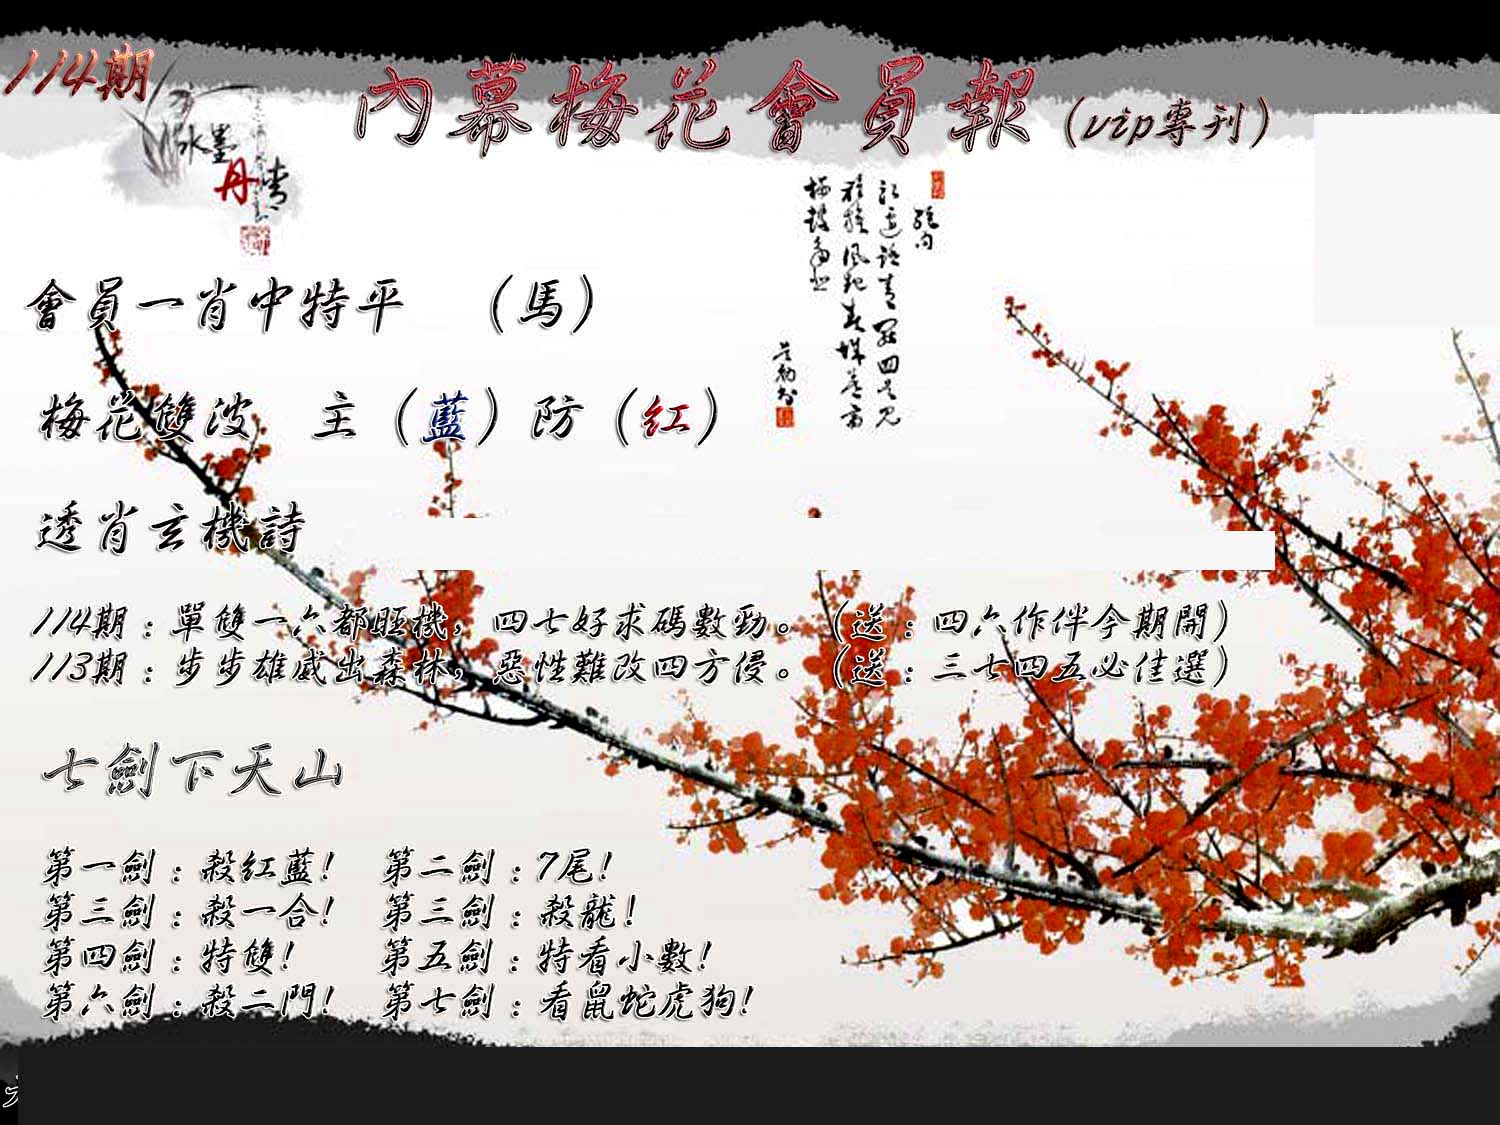 114期
內幕梅花會員報(vip專刊)
水墨
丹青
絕句
會員一肖中特平 (馬)
梅花雙波 主(藍)防(紅)
透肖玄機詩
114期:單雙一六都旺機,四七好求碼數勁。(送:四六作伴今期開)
113期:步步雄威出森林,惡性難改四方侵。(送:三七四五必佳選)
七劍下天山
第一劍:殺紅藍! 第二劍:7尾!
第三劍:殺一合! 第三劍:殺龍!
第四劍:特雙! 第五劍:特看小數!
第六劍:殺二門! 第七劍:看鼠蛇虎狗!